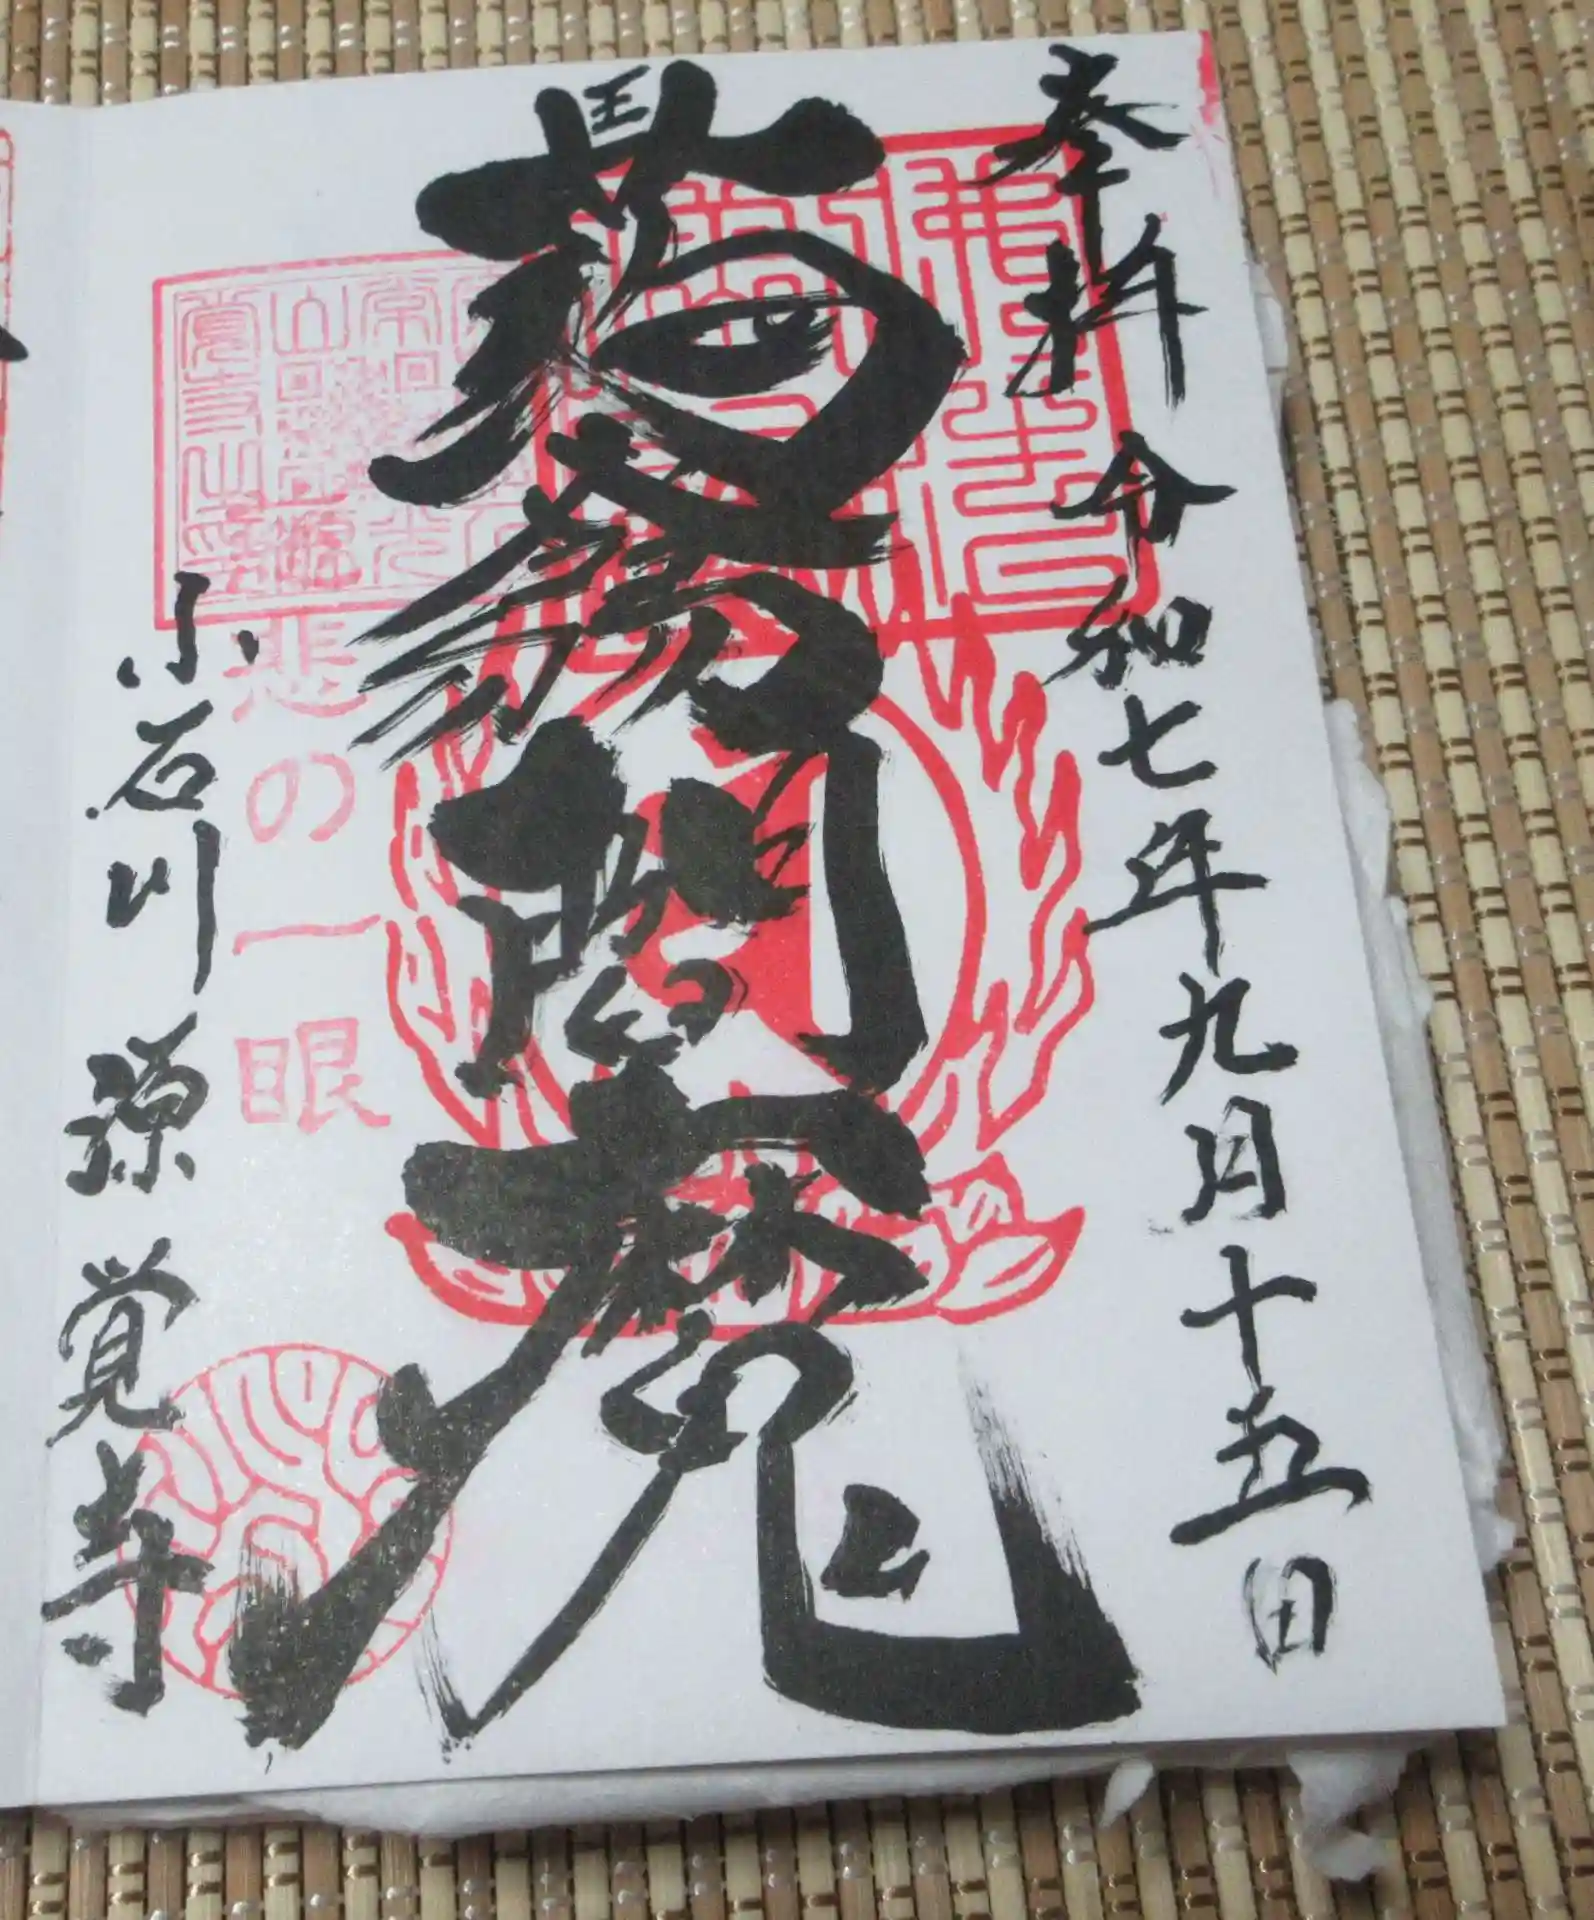 奉拝 令和七年九月十五日
蒟蒻閻魔
王
悲の一眼
小石川 源覚寺